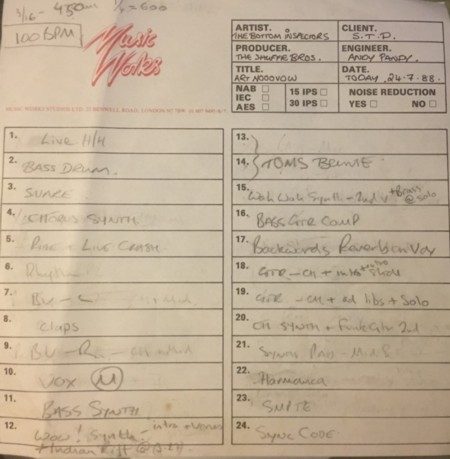 3/16 - 450m ½ = 600
100 BPM
Music Works
ARTIST.
THE BOTTOM INSPECTORS
CLIENT.
S.T.D.
PRODUCER.
THE SHUFFLE BROS.
ENGINEER.
ANDY PANDY.
TITLE.
ART NOOOVOW
DATE.
TODAY 24.7.88.
NAB
IEC
AES
15 IPS
30 IPS
NOISE REDUCTION
YES NO
1. Live H/H
2. BASS DRUM.
3. SNARE
4. CHORUS SYNTH
5. + LIVE CRASH
6.
7. BV -
8. Claps
9. BV - R -
10. VOX (M)
11. BASS SYNTH
12. WOW! Synth - intro +
+ Indian Riff
13.
14. TOMS
15. Wah Wah Synth - 2nd V + Brass @ Solo
16. BASS GTR COMP
17. Backwards Reverb on Vox
18. GTR - CH + intro
19. GTR - CH + ad libs + Solo
20. CH SYNTH + Funk Gtr 2nd
21. Synth Pad -
22. Harmonica
23. SMPTE
24. SYNC CODE